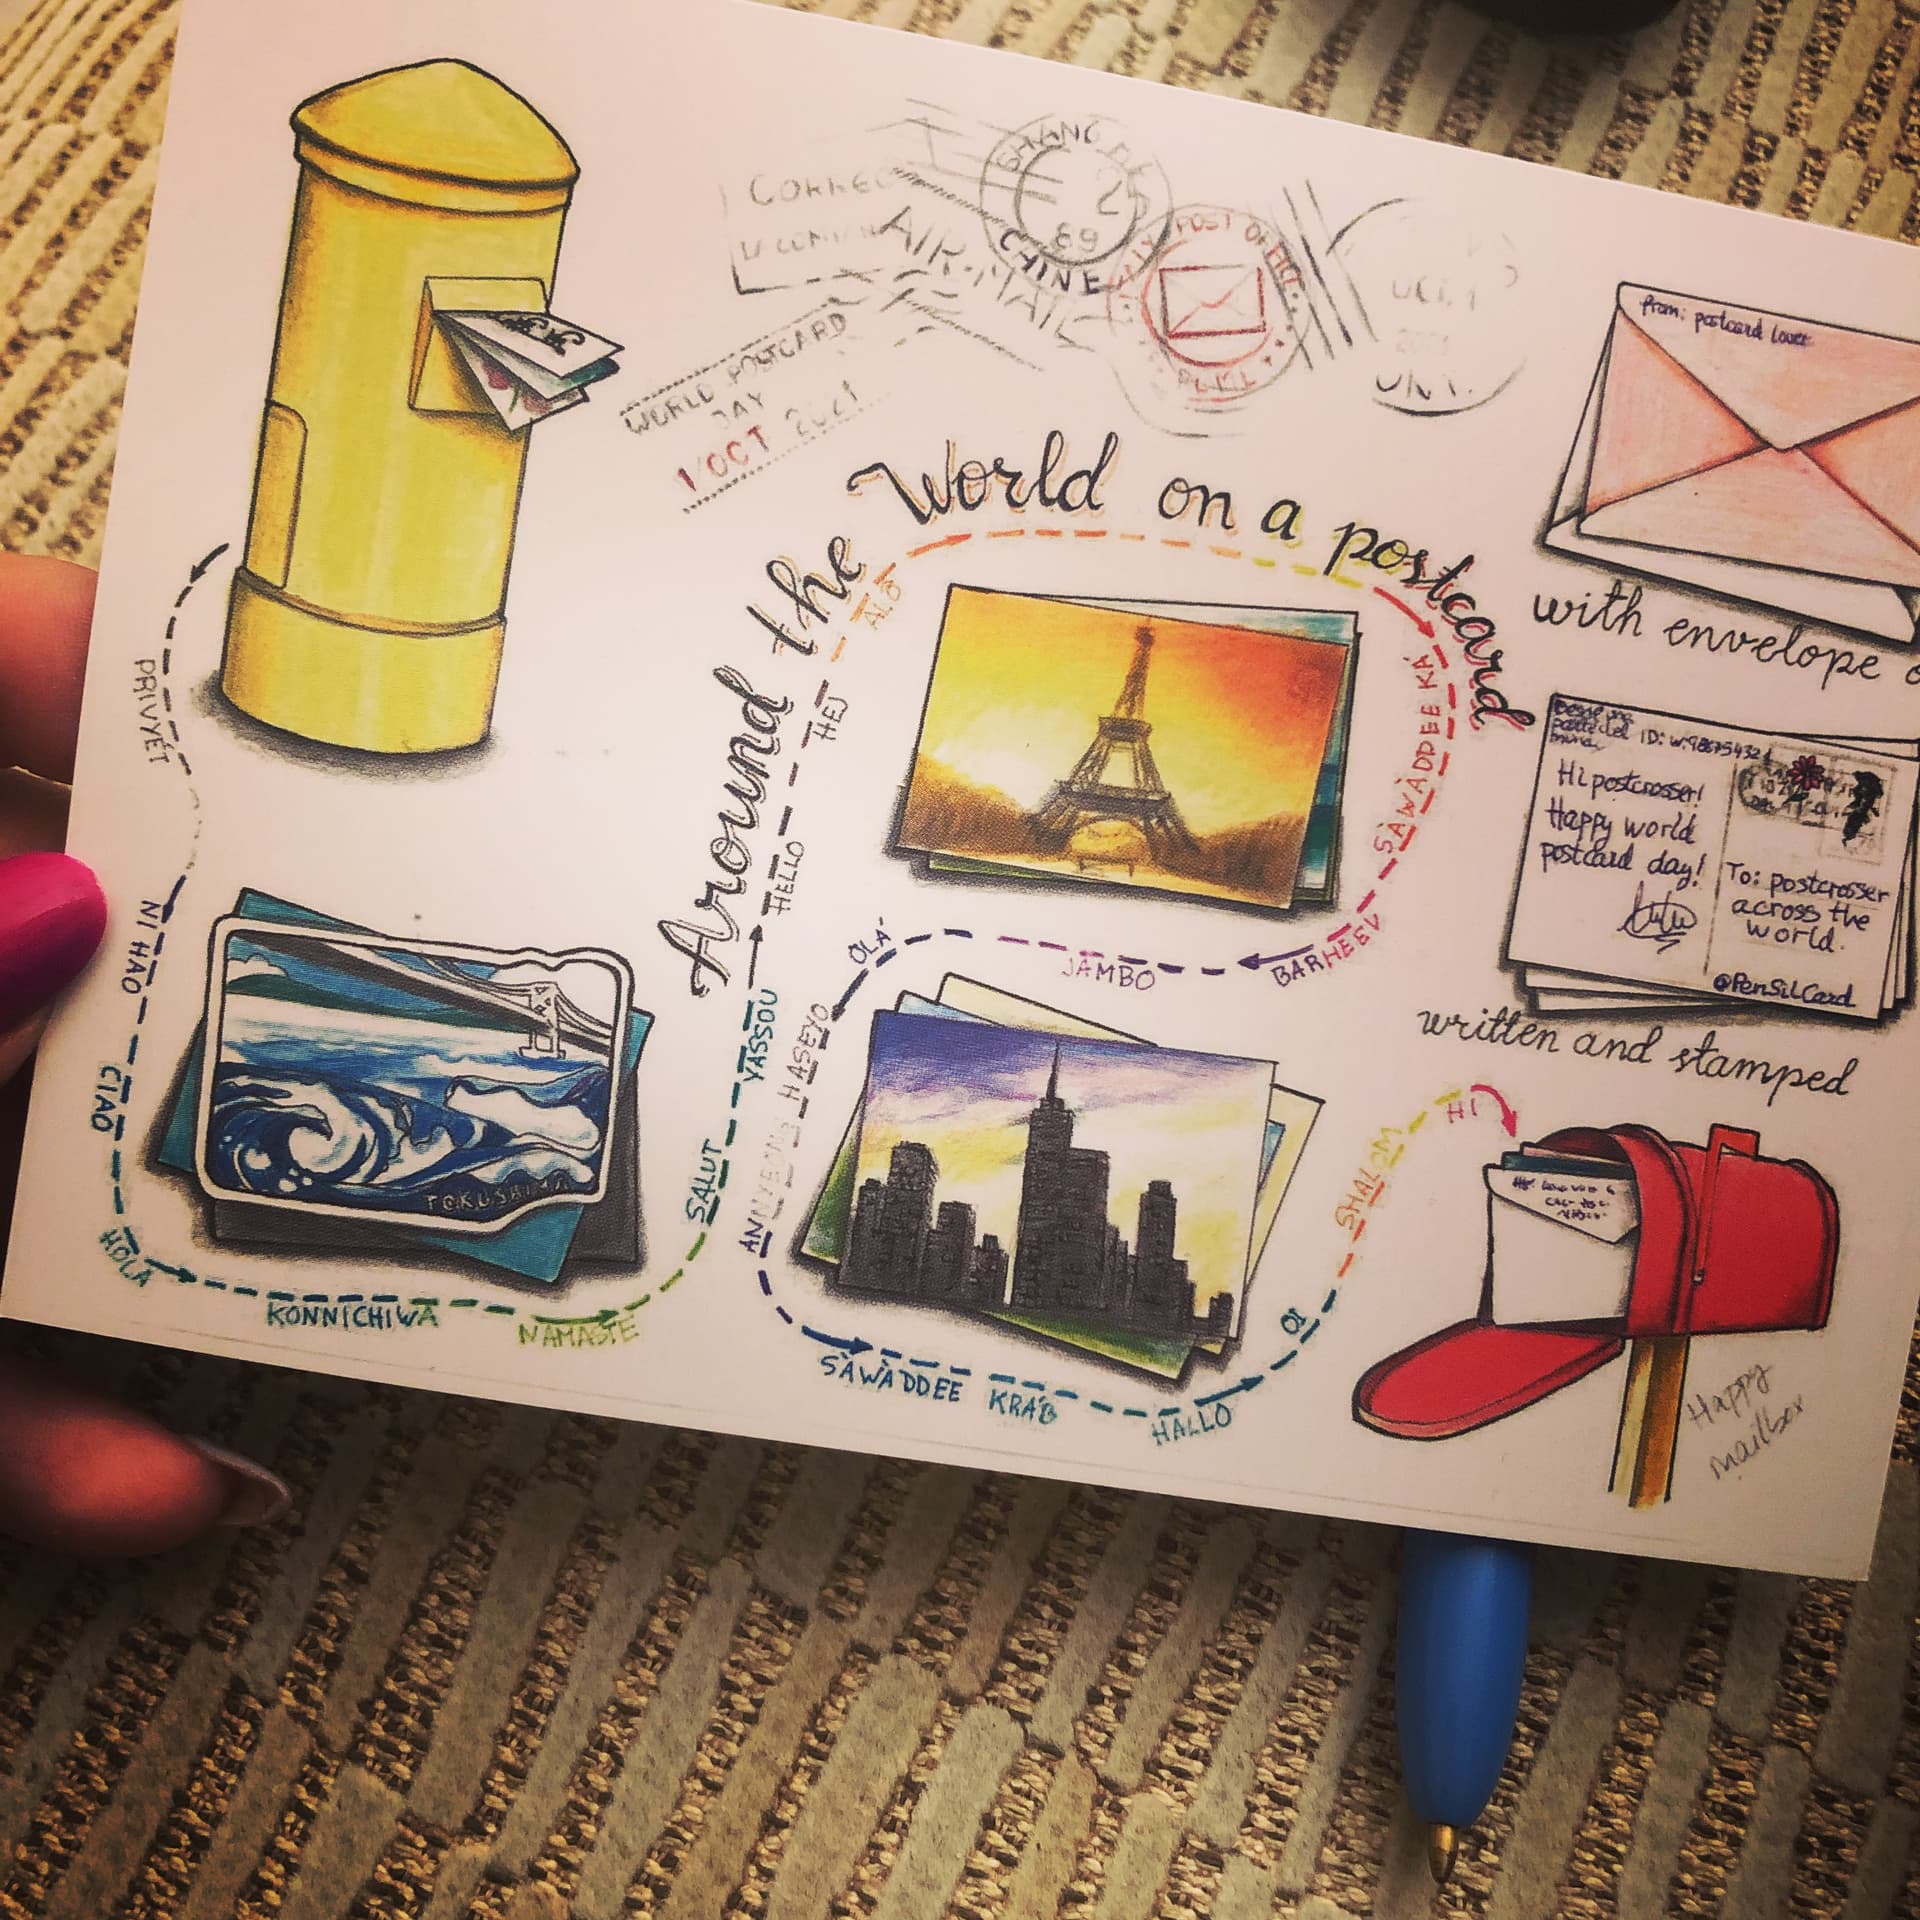 CORREO
AIR MAIL
SHANG
25
89
CHINE
POST OFFICE
WORLD POSTCARD
DAY
1 OCT 2021
Around the World on a postcard
From: postcard lover
with envelope
ID: W:987654321
Hi postcrosser!
Happy world
postcard day!
To: postcrosser
across the
world.
@PenSilCard
written and stamped
PRIVYET
NI HAO
CIAO
HOLA
KONNICHIWA
NAMASTE
SALUT
YASSOU
HELLO
HEJ
ALO
SÀWÀDDEE KÁ
BARHEEV
JAMBO
OLÁ
ANNYEONG HASEYO
SÀWÀDDEE KRÁB
HALLO
OI
SHALOM
HI
TOKUSHIMA
Happy
mailbox